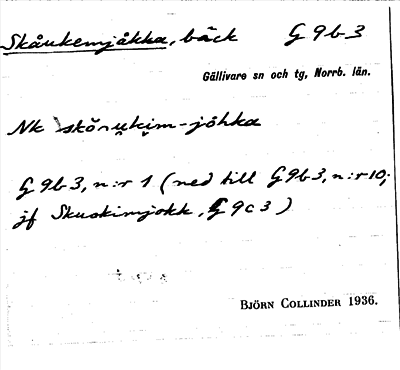 Skåukemjåkka, bäck G 9 b 3
Gällivare sn och tg, Norrb. län.
Nk skōu̯ki̯m-jòhka
G 9 b 3, n:r 1 (ned till G 9 b 3, n:r 10;
jf Skuokimjokk, G 9 c 3)
BJÖRN COLLINDER 1936.